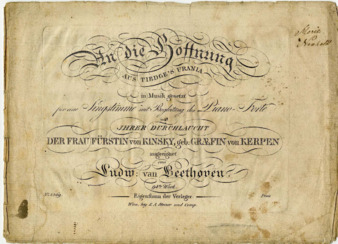 An die Hoffnung
AUS TIEDGE'S URANIA
in Musik gesetzt
für eine Singstimme mit Begleitung des Piano-Forte
und
IHRER DURCHLAUCHT
DER FRAU FÜRSTIN von KINSKY, geb. GRÆFIN von KERPEN
zugeeignet
von
Ludw: van Beethoven
94tes Werk
Eigenthum der Verleger
Wien, bey S. A. Steiner und Comp.